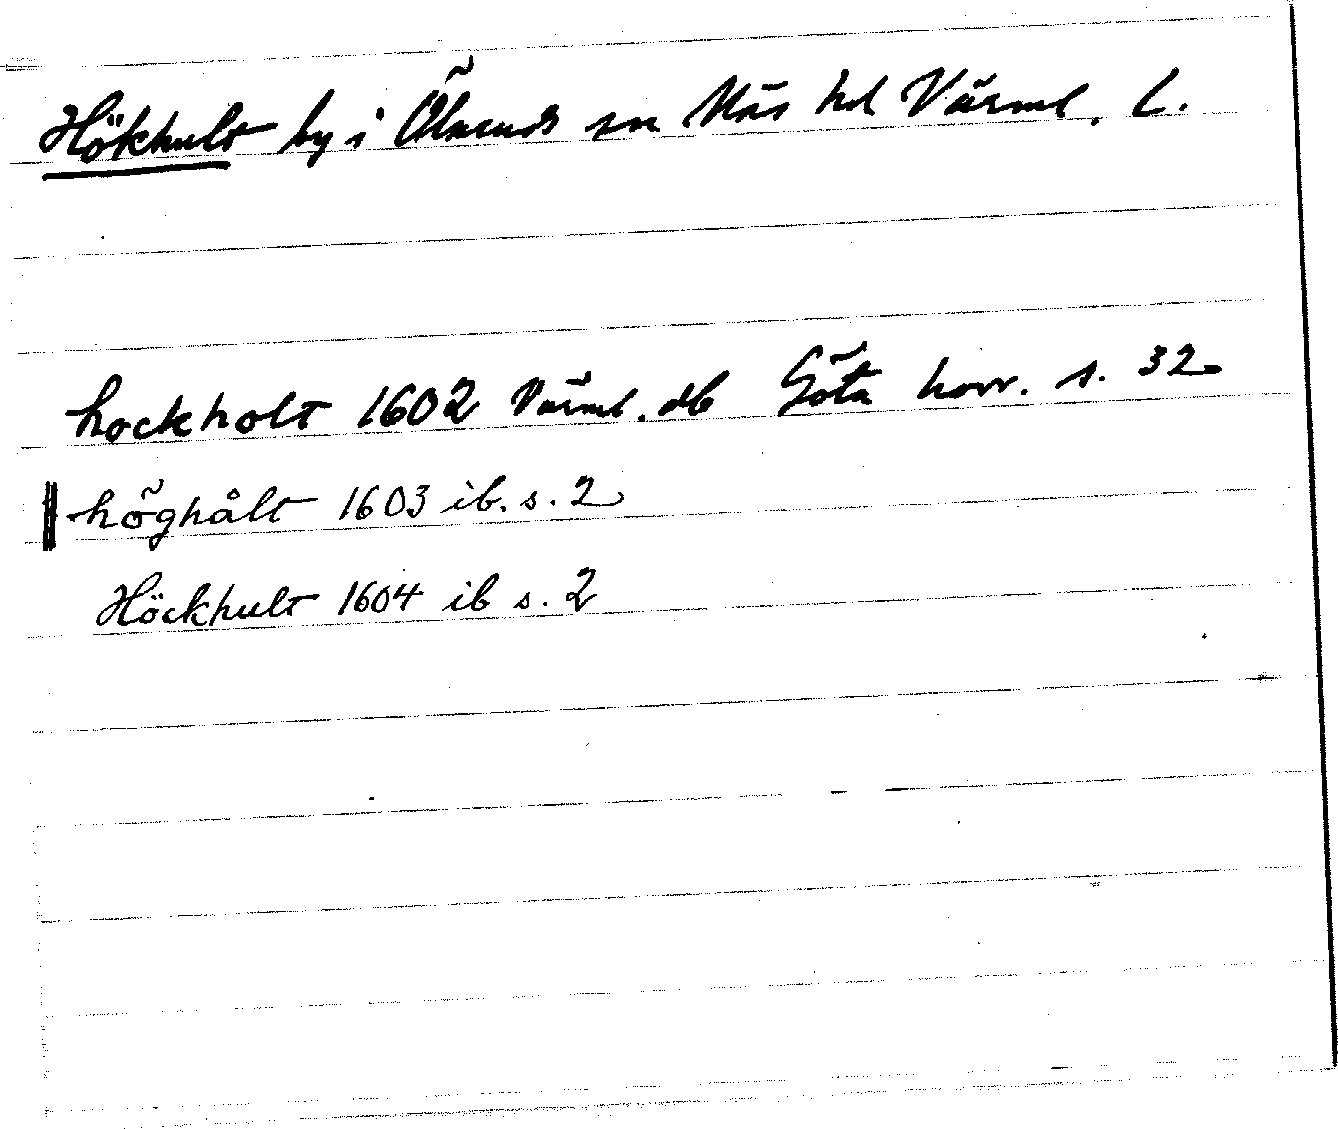 Hökhult by i Ölseruds sn Näs hd Värml. L.
hockholt 1602 Värml. db Göta hovr. s. 32
höghålt 1603 ib. s. 2
Höckhult 1604 ib s. 2